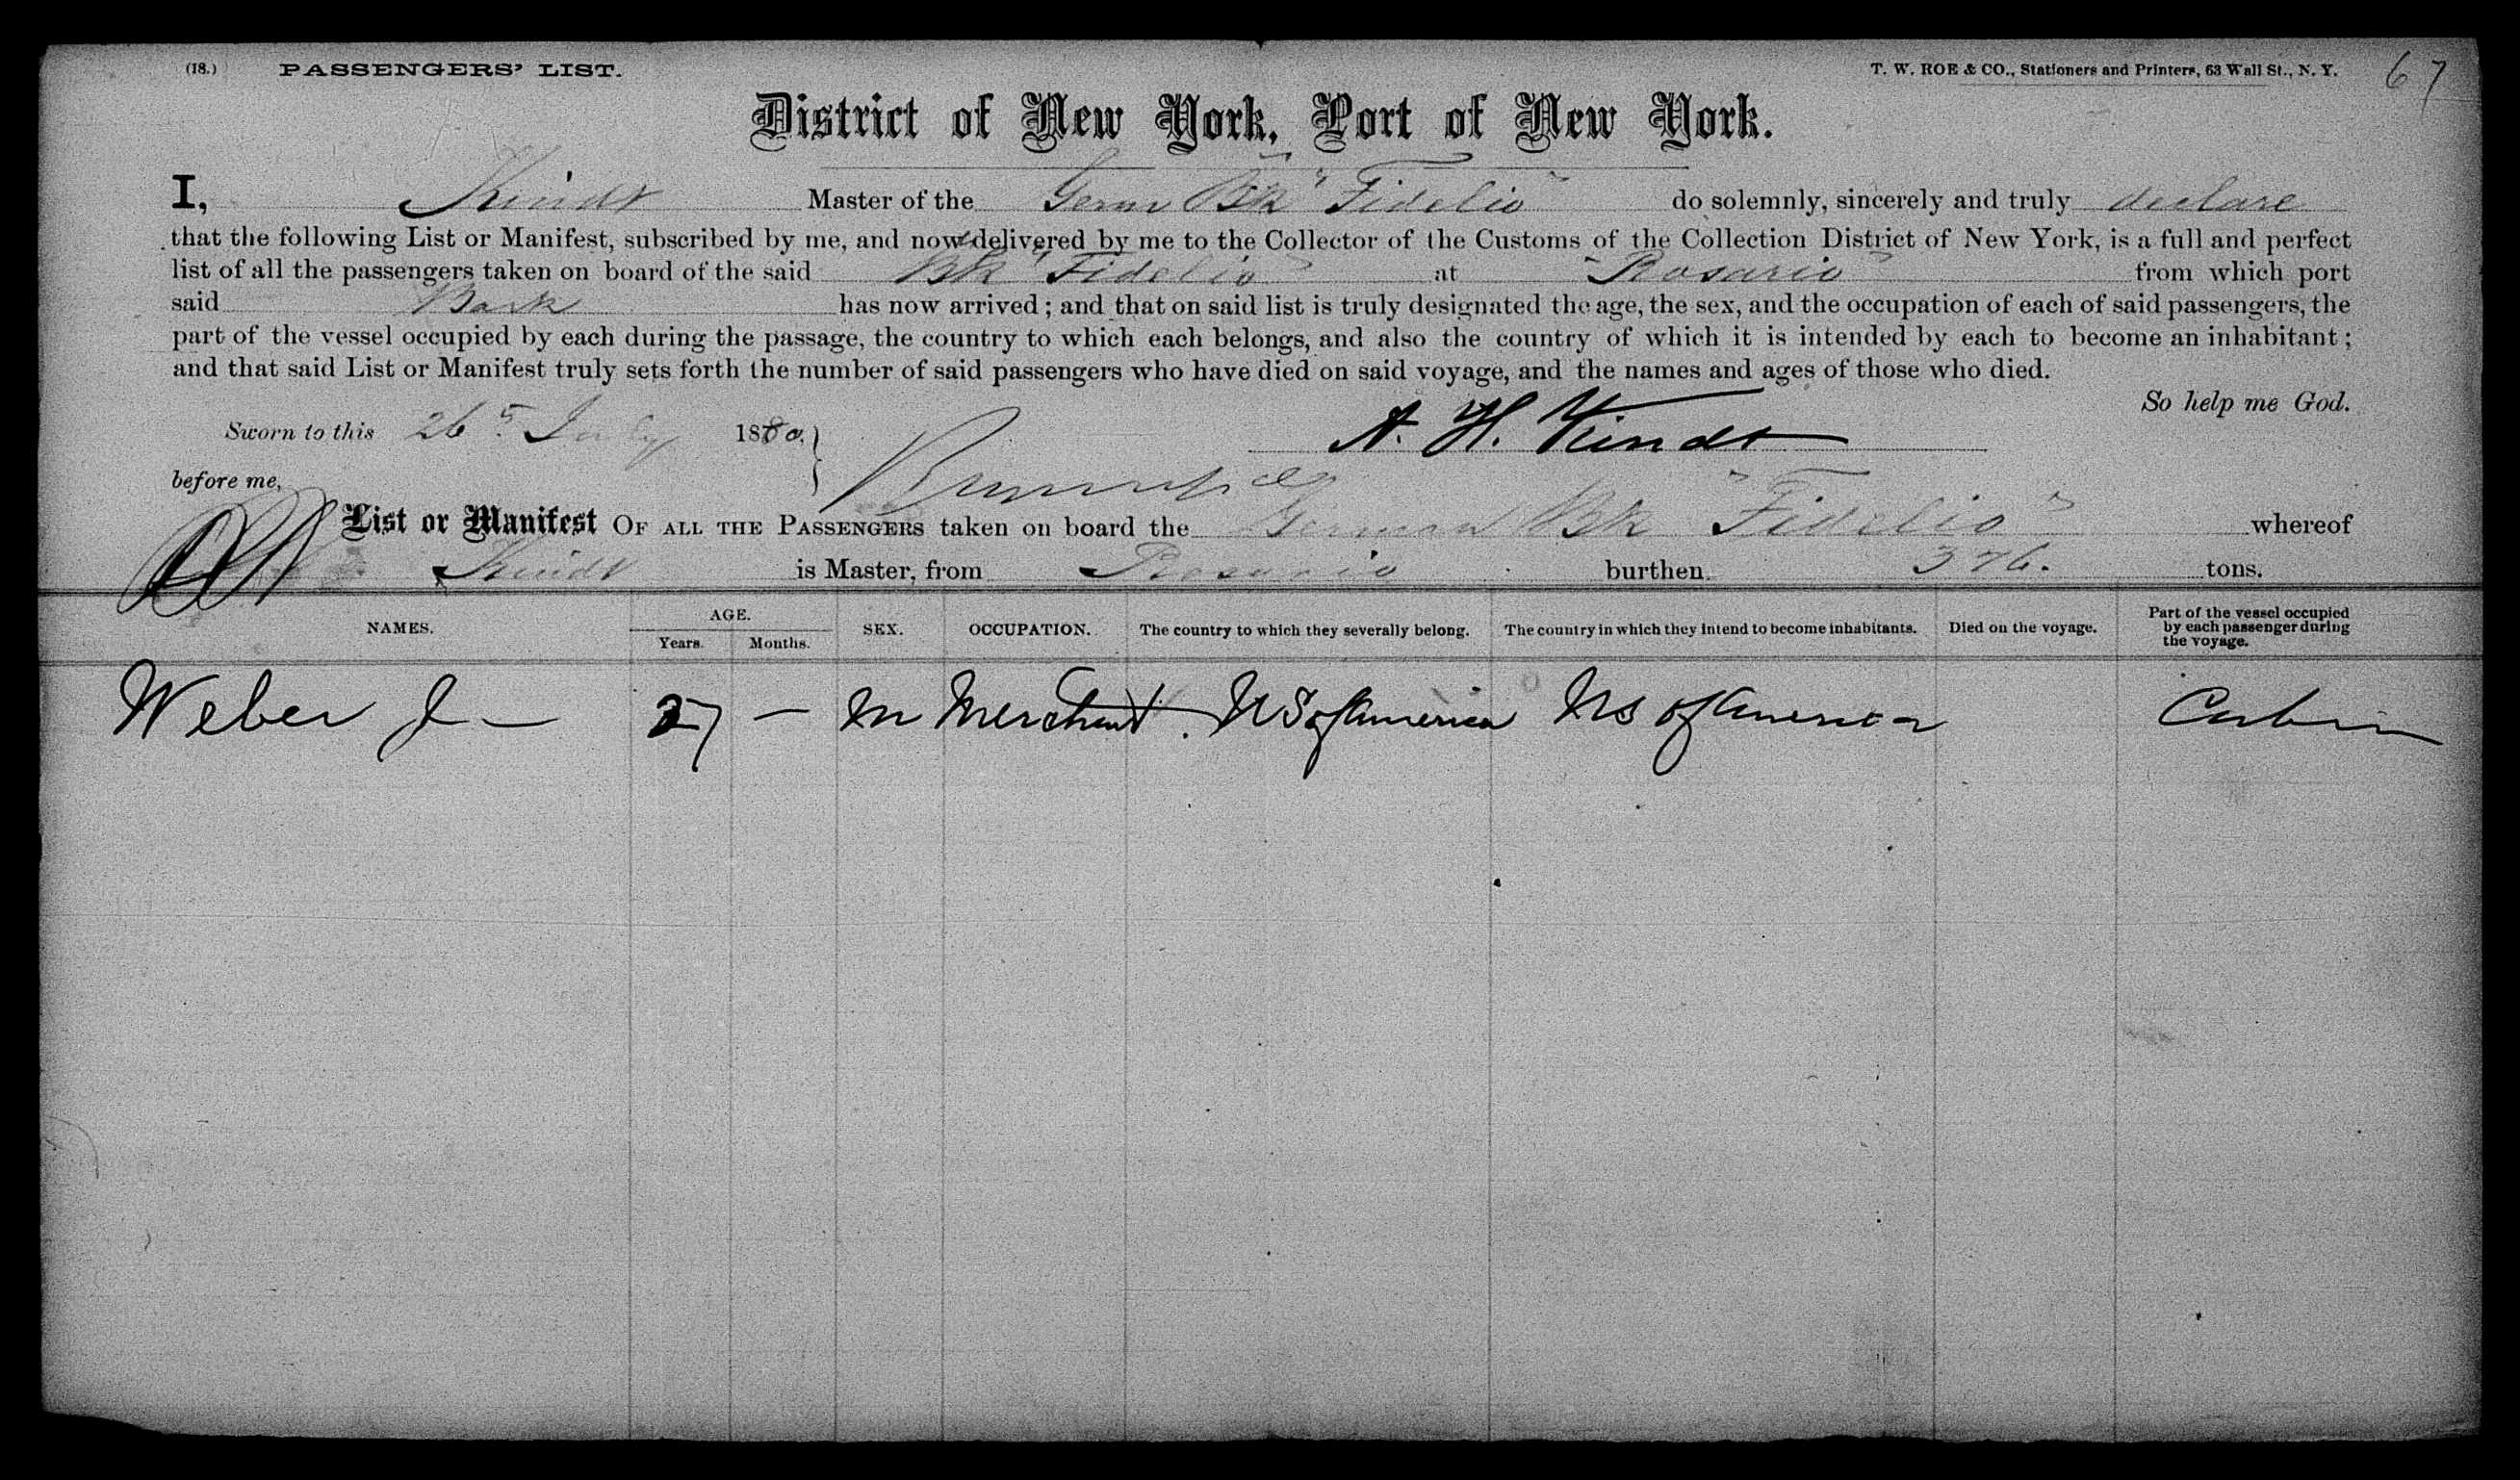 (18.) PASSENGERS' LIST. T. W. ROE & CO., Stationers and Printers, 63 Wall St., N. Y. 67
District of New York, Port of New York.
I, Kindt Master of the Germ Bk "Fidelio" do solemnly, sincerely and truly declare
that the following List or Manifest, subscribed by me, and now delivered by me to the Collector of the Customs of the Collection District of New York, is a full and perfect
list of all the passengers taken on board of the said Bk "Fidelio" at "Rosario" from which port
said Bark has now arrived; and that on said list is truly designated the age, the sex, and the occupation of each of said passengers, the
part of the vessel occupied by each during the passage, the country to which each belongs, and also the country of which it is intended by each to become an inhabitant;
and that said List or Manifest truly sets forth the number of said passengers who have died on said voyage, and the names and ages of those who died.
So help me God.
Sworn to this 26 July 1880. A. H. Kindt
before me,
List or Manifest OF ALL THE PASSENGERS taken on board the German Bk "Fidelio" whereof
Kindt is Master, from Rosario burthen 376. tons.
NAMES. AGE. Years. Months. SEX. OCCUPATION. The country to which they severally belong. The country in which they intend to become inhabitants. Died on the voyage. Part of the vessel occupied by each passenger during the voyage.
Weber J — 27 — m Merchant. US of America US of America Cabin